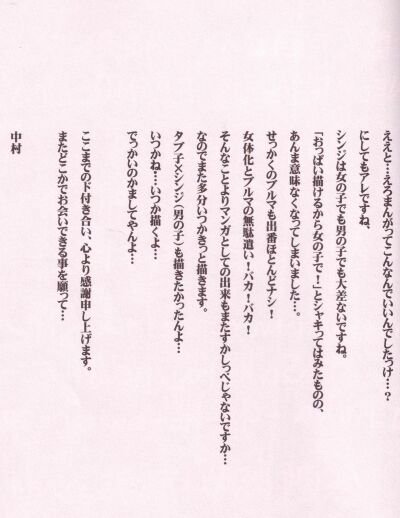 ええと…えろまんがってこんなんでいいんでしたっけ…?
にしてもアレですね、
シンジは女の子でも男の子でも大差ないですね。
「おっぱい描けるから女の子で!」とシャキってはみたものの、
あんま意味なくなってしまいました…。
せっかくのブルマも出番ほとんどナシ!
女体化とブルマの無駄遣い!バカ!バカ!
そんなことよりマンガとしての出来もまたすかしっぺじゃないですか…
なのでまた多分いつかきっと描きます。
タブ子×シンジ(男の子)も描きたかったんよ…
いつかね…いつか描くよ…
でっかいのかましてやんよ…
ここまでのド付き合い、心より感謝申し上げます。
またどこかでお会いできる事を願って…
中村